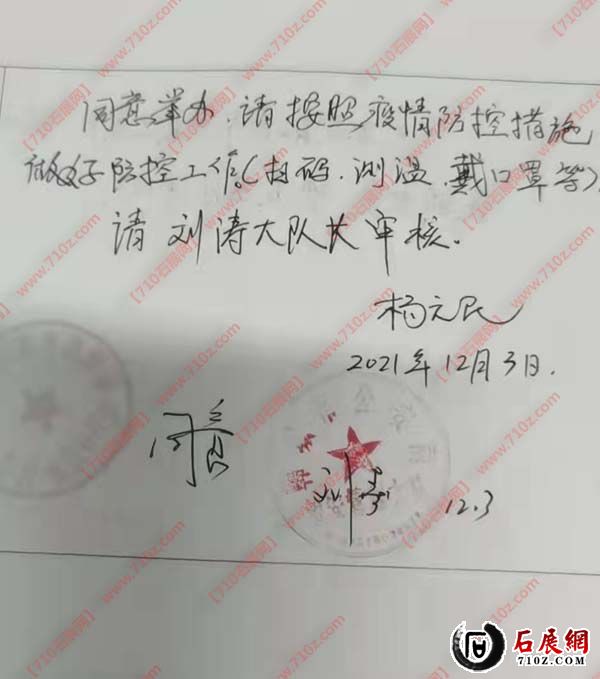 同意举办，请按照疫情防控措施
做好防控工作。(扫码、测温、戴口罩等)
请刘涛大队长审核。
杨立民
2021年12月3日.
同意
刘涛 12.3
【710石展网】www.710z.com
石展網
710z.com